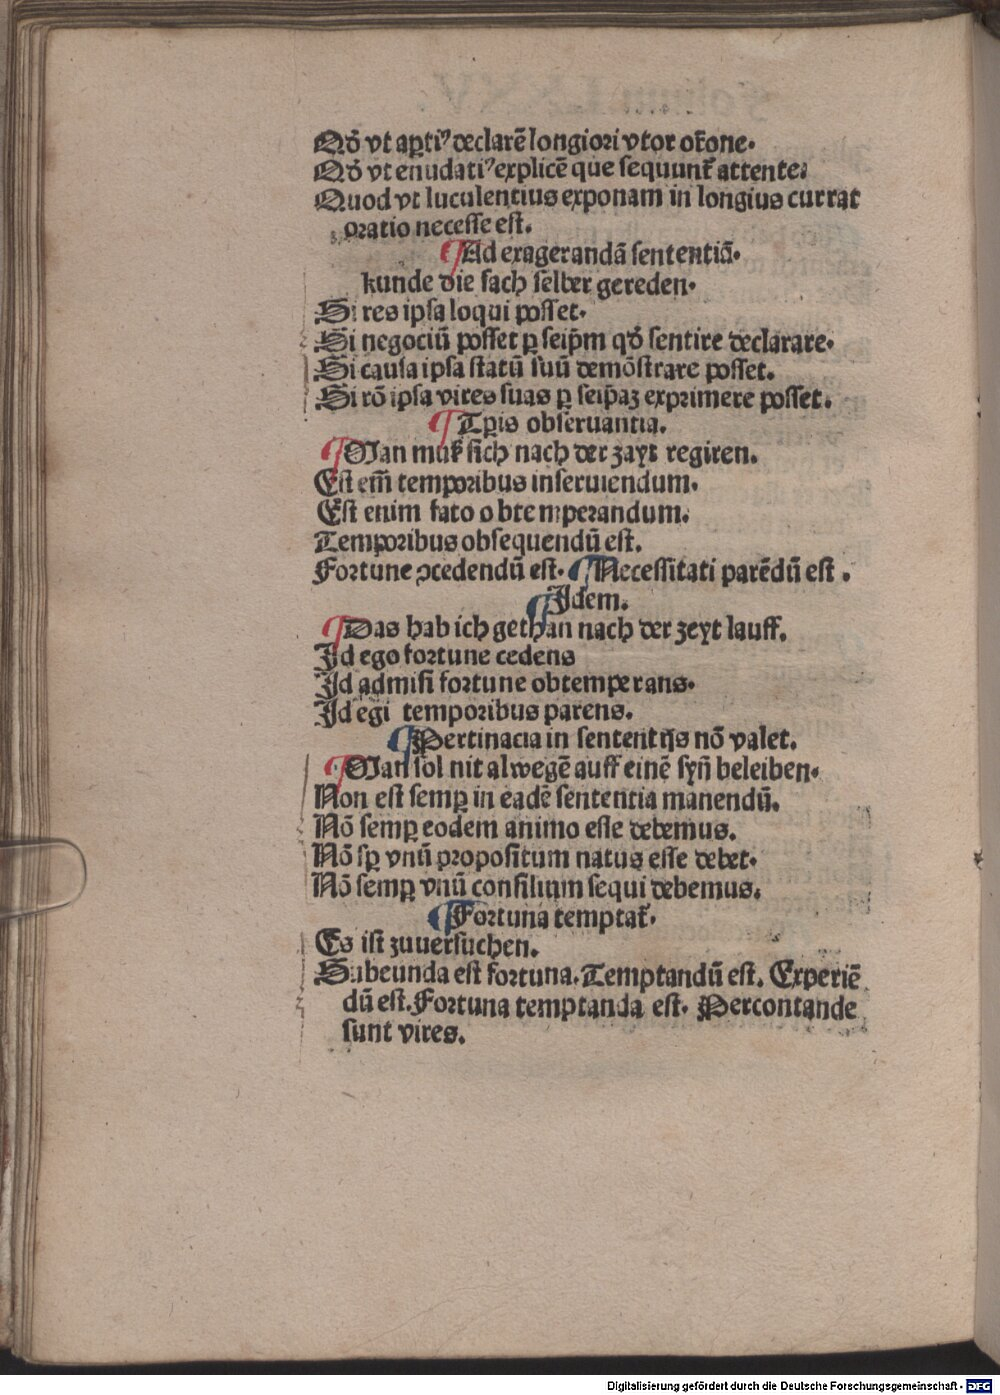 Qđ vt aꝑtiꝰ declarē longiori vtor orōne.
Qđ vt enudatiꝰ explicē que sequunt̄ attente.
Quod vt luculentius exponam in longius currat
oratio necesse est.
¶Ad exagerandā sententiā.
kunde die sach selber gereden.
Si res ipsa loqui posset.
Si negociū posset ꝑ seip̄m qđ sentire declarare.
Si causa ipsa statū suū demōstrare posset.
Si rō ipsa vires suas ꝑ seip̄aꝫ exprimere posset.
¶Tꝑis obseruantia.
¶Man muß sich nach der zayt regiren.
Est em̄ temporibus inseruiendum.
Est enim fato obtemperandum.
Temporibus obsequendū est.
Fortune ꝯcedendū est. ¶Necessitati parēdū est.
¶Idem.
¶Das hab ich gethan nach der zeyt lauff.
Id ego fortune cedens
Id admisi fortune obtemperans.
Id egi temporibus parens.
¶Pertinacia in sententijs nō valet.
¶Man sol nit alwegē auff einē syn̄ beleiben.
Non est semꝑ in eadē sententia manendū.
Nō semꝑ eodem animo esse debemus.
Nō sꝑ vnū propositum natus esse debet.
Nō semꝑ vnū consilium sequi debemus.
¶Fortuna temptat̄.
Es ist zuuersuchen.
Subeunda est fortuna. Temptandū est. Experiē
dū est. Fortuna temptanda est. Percontande
sunt vires.
Digitalisierung gefördert durch die Deutsche Forschungsgemeinschaft - DFG